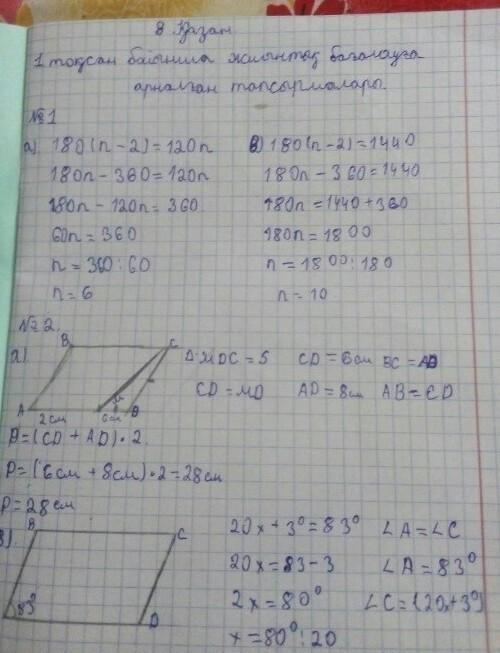 8 Қазан
1 тоқсан бойынша жиынтық бағалауға
арналған тапсырмалары.
№1
а) 180(n-2)=120n
180n-360=120n
180n-120n=360
60n=360
n=360:60
n=6
в) 180(n-2)=1440
180n-360=1440
180n=1440+360
180n=1800
n=1800:180
n=10
№2.
а)
B C
A 2см 6см D
ΔMDC=5 CD=6см BC=AD
CD=MD AD=8см AB=CD
P=(CD+AD)·2
P=(6см+8см)·2=28см
P=28см
в)
B C
83° D
20x+3°=83° ∠A=∠C
20x=83-3 ∠A=83°
2x=80° ∠C=(20x+3°)
x=80°:20